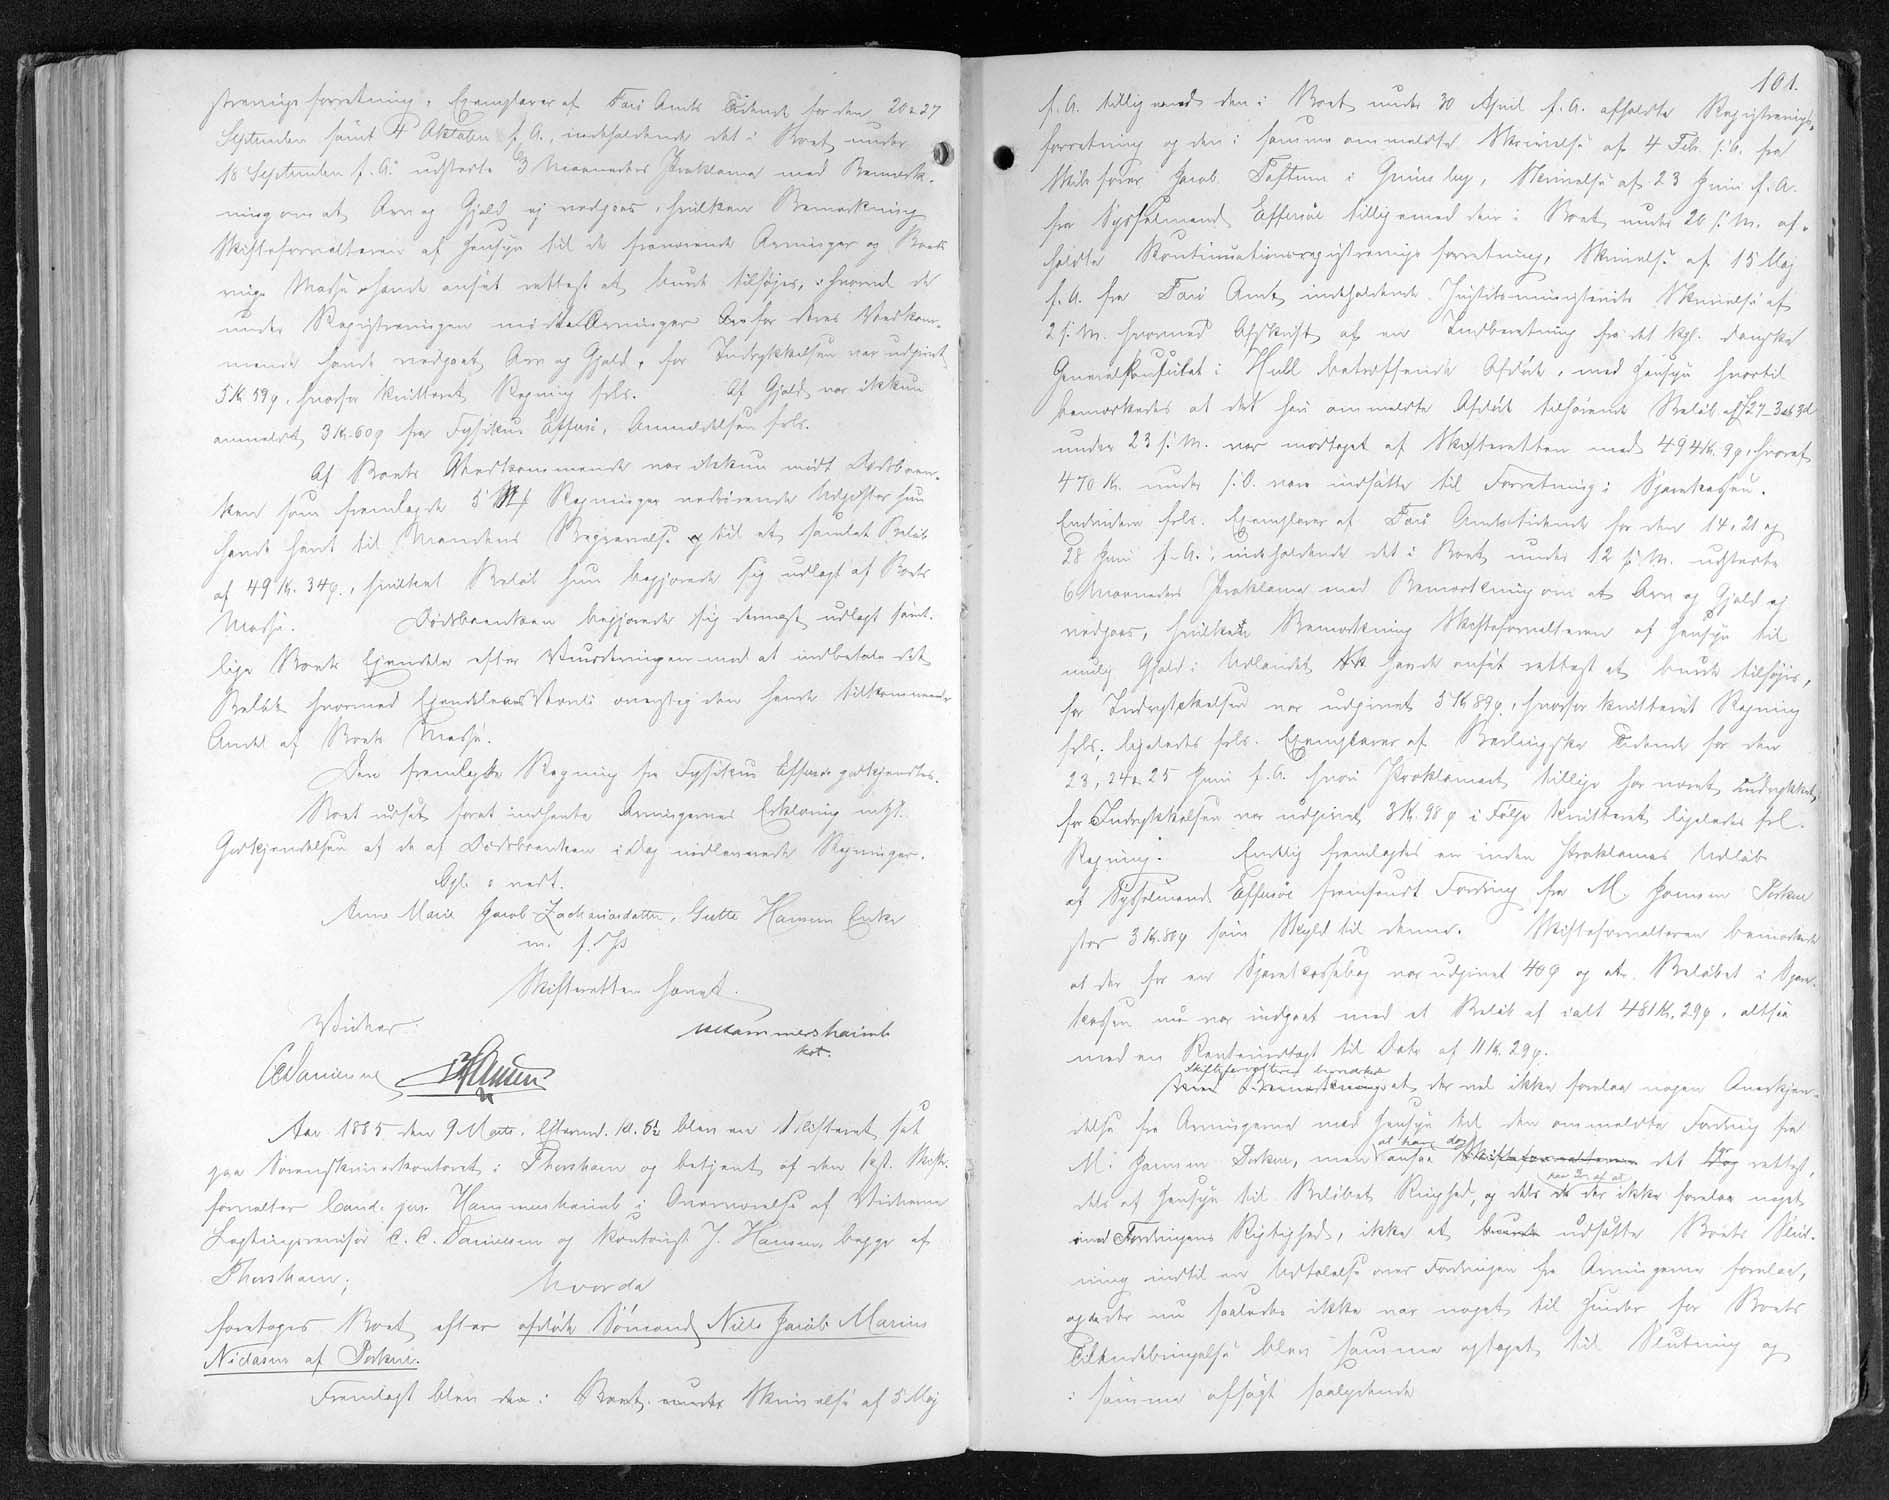 streringsforretning, Exemplarer af Færø Amts Tidende for den 20 & 27
September samt 4 Oktober f. A., indeholdende det i Boet under
18 September f. A. udstedte 3 Maaneders Proklama med Bemærk-
ning om at Arv og Gjæld ej vedgaaes, hvilken Bemærkning
Skifteforvalteren af Hensyn til de fraværende Arvinger og Boets
ringe Masse havde anset rettest at burde tilføjes, hvorved de
under Registreringen mødte Arvinger for deres Vedkom-
mende havde vedgaaet Arv og Gjæld, for Indrykkelsen var udgivet
5 Kr 59 ø, hvorfor kvitteret Regning frls. Af Gjæld var ikkun
anmeldt 3 Kr. 60 ø fra Fysikus Effersøe, Anmeldelsen frls.
Af Boets Vedkommende var ikkun mødt Dødsboen-
ken som fremlagde 5 Regninger vedrørende Udgifter hun
havde havt til Mandens Begravelse og til et samlet Beløb
af 49 Kr. 34 ø., hvilket Beløb hun begjærede sig udlagt af Boets
Masse. Dødsboenken begjærede sig dernæst udlagt samt-
lige Boets Ejendele efter Vurderingen mod at indbetale det
Beløb hvormed Ejendelenes Værdi oversteg den hende tilkommende
Andel af Boets Masse.
Den fremlagte Regning fra Fysikus Effersøe godkjendtes.
Boet udsat foret indhente Arvingernes Erklæring mht.
Godkjendelsen af de af Dødsboenken i Dag nedleverede Regninger.
Opl. & vedt.
Anne Marie Jacob Zachariasdatter, Gutte Hansens Enke
m. f. P.
Skifteretten hævet.
Vidner: Hammershaimb
kst.
CC Danielsen JHansen
Aar 1885 den 9 Marts, Eftermd. Kl. 6½ blev en Skifteret sat
paa Sorenskriverkontoret i Thorshavn og betjent af den kst. Skifte-
forvalter Cand. jur. Hammershaimb i Overværelse af Vidnerne
Lagtingsrevisor C. C. Danielsen og Kontorist J. Hansen, begge af
Thorshavn;
hvorda
foretoges Boet efter afdøde Sømand Niels Jacob Marius
Niclasen af Porkeri.
Fremlagt blev den i Boet under Skrivelse af 5 Maj
101.
f. A. tilligemed den i Boet under 30 April f. A. afholdte Registrerings-
forretning og den i samme ommeldte Skrivelse af 4 Feb. s. A. fra
Skibsfører Jacob Toftum i Grimsby, Skrivelse af 23 Juni f. A.
fra Sysselmand Effersøe tilligemed den i Boet under 20 s. M. af-
holdte Kontinuationsregistreringsforretning, Skrivelse af 15 Maj
f. A. fra Færø Amt indeholdende Justitsministeriets Skrivelse af
2 s. M. hvormed Afskrift af en Indberetning fra det kgl. danske
Generalkonsulat i Hull betræffende Afdøde, med Hensyn hvortil
bemærkedes at det heri ommeldte Afdøde tilhørende Beløb af £27-3sh 3d
under 23 s. M. var modtaget af Skifteretten med 494 Kr. 9 ø, hvoraf
470 Kr. under s. D. vare indsatte til Forrentning i Sparekassen.
Endvidere frls. Exemplarer af Færø Amtstidende for den 14, 21 og
28 Juni f. A., indeholdende det i Boet under 12 s. M. udstedte
6 Maaneders Proklama med Bemærkning om at Arv og Gjæld ej
vedgaaes, hvilken Bemærkning Skifteforvalteren af Hensyn til
mulig Gjæld i Udlandet havde anset rettest at burde tilføjes,
for Indrykkelsen var udgivet 5 Kr 89 ø, hvorfor kvitteret Regning
frls., ligeledes frls. Exemplarer af Berlingske Tidende for den
23, 24 & 25 Juni f. A. hvori Proklamaet tillige har været indrykket,
for Indrykkelsen var udgivet 3 Kr. 98 ø i Følge kvitteret ligeledes frl.
Regning. Endelig fremlagdes en inden Proklamas Udløb
af Sysselmand Effersøe fremsendt Fordring fra M. Joensen Porkeri
stor 3 Kr. 80 ø som Skyld til denne. Skifteforvalteren bemærkede
at der for en Sparekassebog var udgivet 40 ø og at Beløbet i Spare-
kassen nu var indgaaet med et Beløb af ialt 481 Kr. 29 ø, altsaa
med en Renteindtægt til Dato af 11 Kr. 29 ø.
Skifteforvalteren bemærkede
at der vel ikke forelaa nogen Anerkjen-
delse fra Arvingerne med Hensyn til den anmeldte Fordring fra
M. Joensen Porkeri, men at han dog ansaa det for rettest,
dels af Hensyn til Beløbets Ringhed, og dels da der ikke forelaa noget
imod Fordringens Rigtighed, ikke at udsætte Boets Slut-
ning indtil en Udtalelse over Fordringen fra Arvingerne forelaa,
og da der nu saaledes ikke var noget til Hinder for Boets
Tilendebringelse blev samme optaget til Slutning og
i samme afsagt saalydende